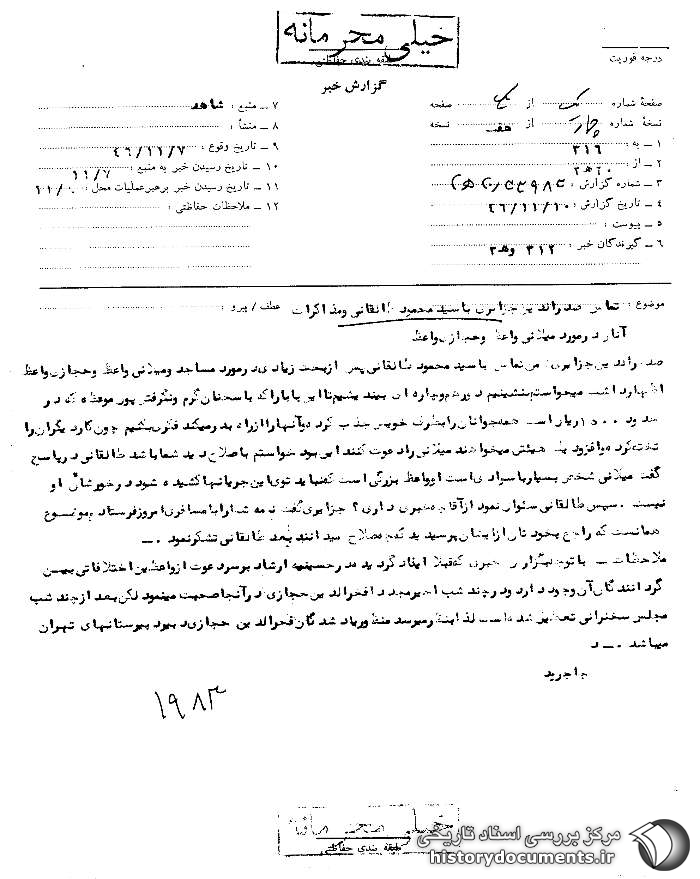 خیلی محرمانه
طبقه بندی حفاظتی
درجه فوریت
گزارش خبر
صفحهٔ شماره یک از یک صفحه
نسخهٔ شماره چهار از هفت نسخه
۱ ـ به : ۳۱۶
۲ ـ از : ۲۰ ه‍ ۳
۳ ـ شماره گزارش :
۴ ـ تاریخ گزارش : ۴۶/۱۱/۱۰
۵ ـ پیوست :
۶ ـ گیرندگان خبر : ۳۱۲ و ه‍ ۳
۷ ـ منبع : شاهد
۸ ـ منشأ :
۹ ـ تاریخ وقوع : ۴۶/۱۱/۷
۱۰ ـ تاریخ رسیدن خبر به منبع : ۱۱/۷
۱۱ ـ تاریخ رسیدن خبر برهبر عملیات محل :
۱۲ ـ ملاحظات حفاظتی :
موضوع : تماس صدرالدین جزایری با سید محمود طالقانی و مذاکرات عطف / پیرو :
آنان در مورد میلانی واعظ و حجازی واعظ
صدرالدین جزایری ضمن تماس با سید محمود طالقانی پس از بحث زیادی در مورد مساجد و میلانی واعظ و حجازی واعظ
اظهار داشت میخواستم بنشینیم دور هم و چاره ای بیندیشیم تا این بابا را که با سخنان گرم و نگرفتن پور موعظه که در
حدود ۱۵۰۰ ریال است همه جوانان را بطرف خویش جذب کرده و آنها را اراده برمیکند فکری بکنیم چون کار دیگران را
تخته کرده و افزود یک هیئتی میخواهند میلانی را دعوت کنند این بود خواستم با صلاحدید شما باشد طالقانی در پاسخ
گفت میلانی شخص بسیار با سوادی است او واعظ بزرگی است که نباید توی این جریانها کشیده شود در خور شأن او
نیست . سپس طالقانی سئوال نمود از آقا چه خبری داری ؟ جزایری گفت نامه شما را با مسافری امروز فرستادم موضوع
همانست که راجع بخودتان از ایشان پرسیدید که چه صلاح میدانند بعد طالقانی تشکر نمود . ـ
ملاحظات ـ با توجه بگزارش خبری که قبلا ایفاد گردید در حسینیه ارشاد بر سر دعوت از واعظین اختلافاتی بین
گردانندگان آن وجود دارد و در چند شب اخیر مجددا فخرالدین حجازی در آنجا صحبت مینمود لکن بعد از چند شب
مجلس سخنرانی تعطیل شده است لذا بنظر میرسد منظور یاد شدگان فخرالدین حجازی دبیر دبیرستانهای تهران
میباشد . ـ د
جاجرید
۱۹۸۳
خیلی محرمانه
طبقه بندی حفاظتی
مرکز بررسی اسناد تاریخی
historydocuments.ir